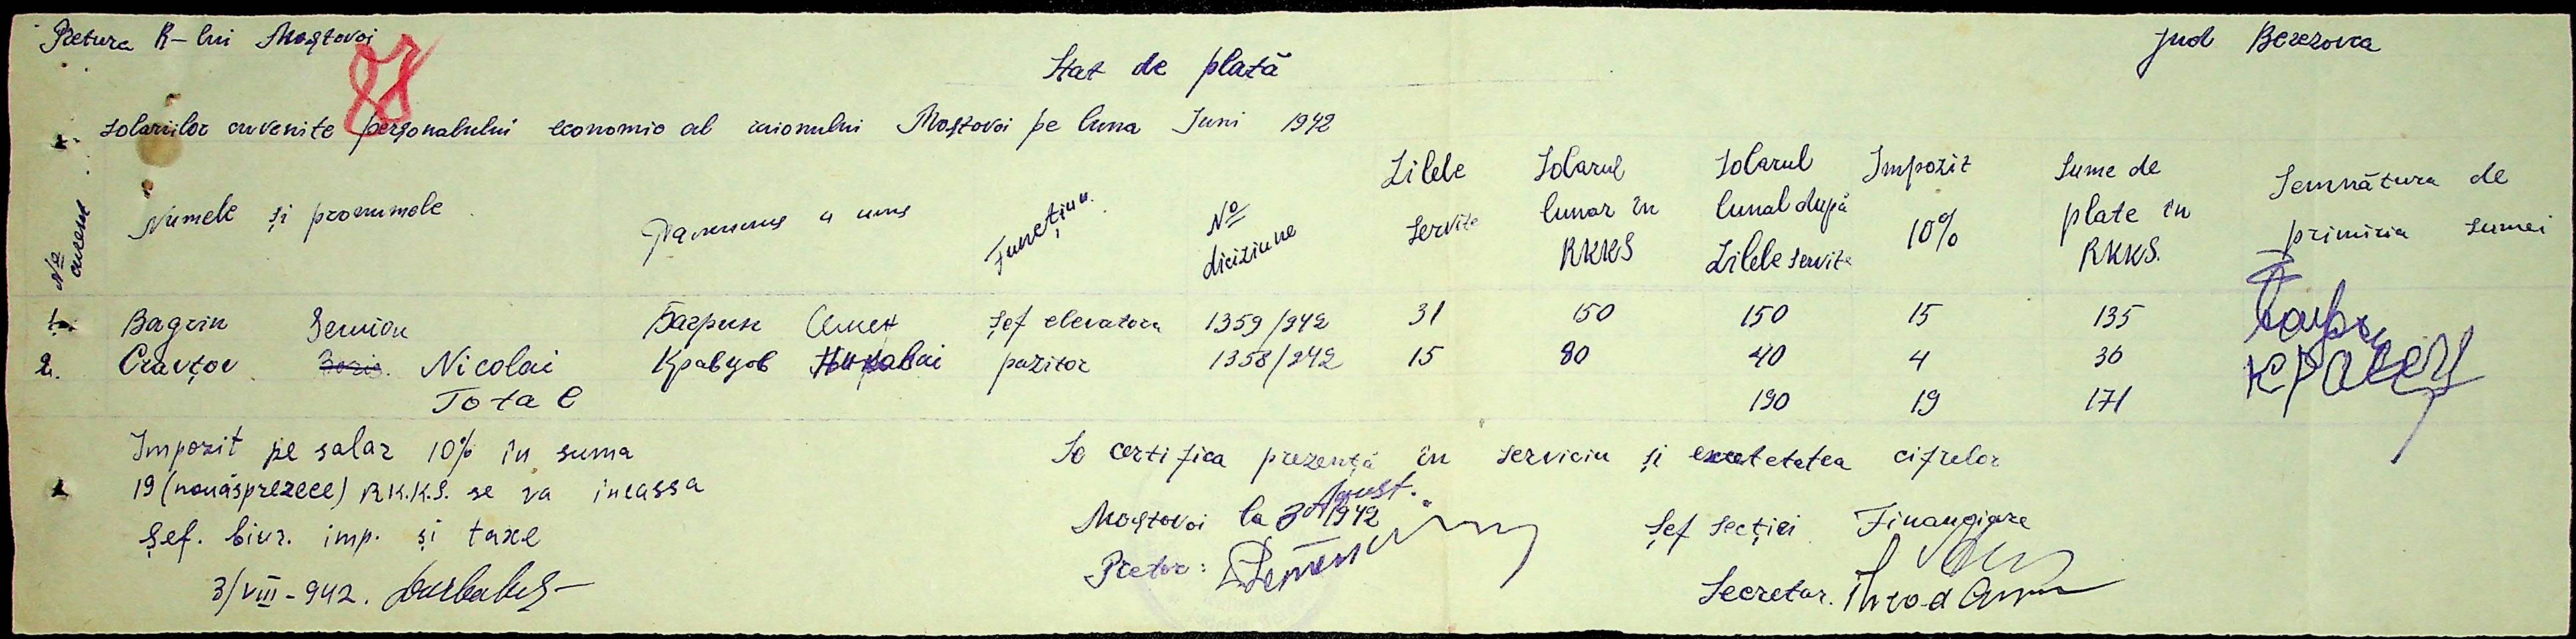 Pretura R-lui Moștovoi
Jud Berezovca
88
Stat de plată
solariilor cuvenite personalului economic al raionului Moștovoi pe luna Juni 1942
No curent
Numele și pronumele
Фамилия и имя
Funcțiun.
No diciziune
Zilele servite
Solarul lunar în RKKS
Solarul lunal după Zilele servite
Impozit 10%
Sume de plate în RKKS.
Semnătura de primiria sumei
1. Bagrin Semion Багрин Семен șef elevatora 1359/942 31 150 150 15 135
2. Cravțov Boris. Nicolai Кравцов Николai pazitor 1358/942 15 80 40 4 36 Кравец
Total 190 19 171
Impozit pe salar 10% în suma
19 (nouăsprezece) R.K.K.S. se va incassa
Șef. biur. imp. și taxe
3/VIII-942.
Se certifica prezență în serviciu și exectetatea cifrelor
Moștovoi la 3 Agust. 1942
Pretor:
Șef secției Finanțiare
Secretar.